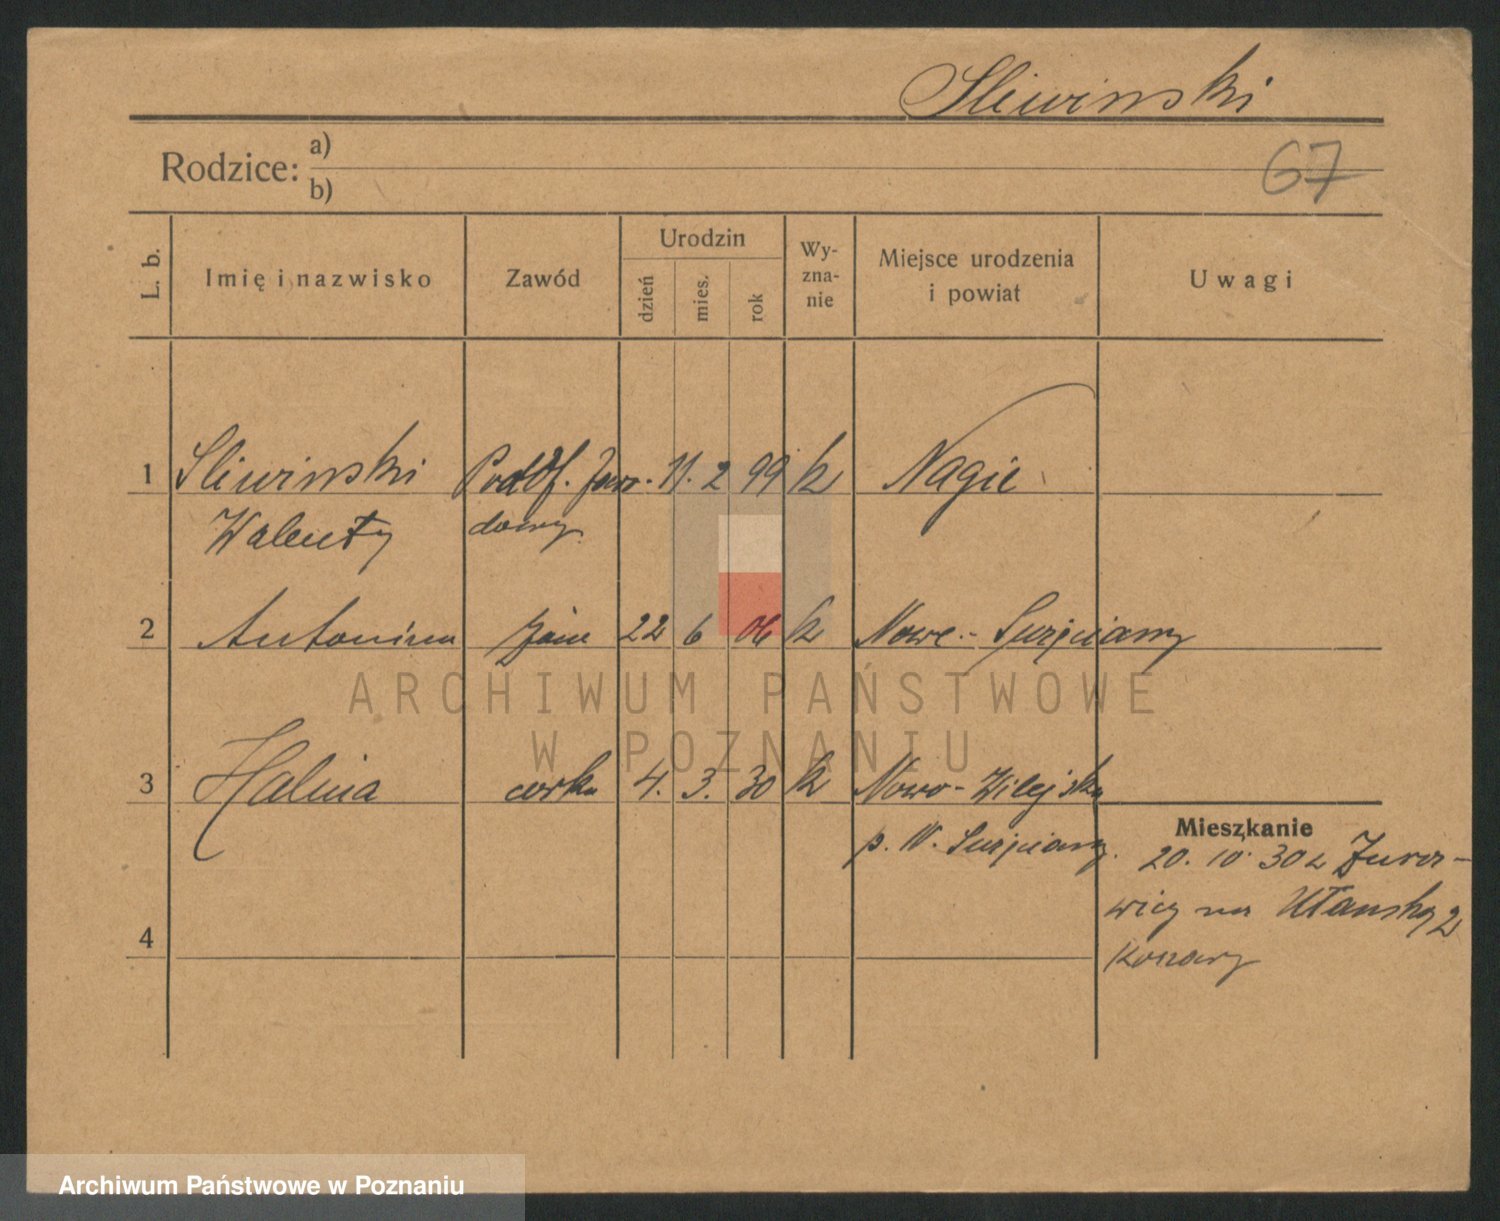 Sliwinski
67
Rodzice: a)
b)
L. b.
Imię i nazwisko
Zawód
Urodzin
dzień
mies.
rok
Wy-
zna-
nie
Miejsce urodzenia
i powiat
Uwagi
1 Sliwinski Podof. Zawo- 11. 2 99 k Nagie
Walenty dowy
2 Antonina żona 22 6 06 k Nowe-
3 Halina corka 4. 3. 30 k Nowo-Wilejska
p. N.
Mieszkanie
20. 10. 30 z
na Ułańską 2
Koszary
4
ARCHIWUM PAŃSTWOWE
W POZNANIU
Archiwum Państwowe w Poznaniu